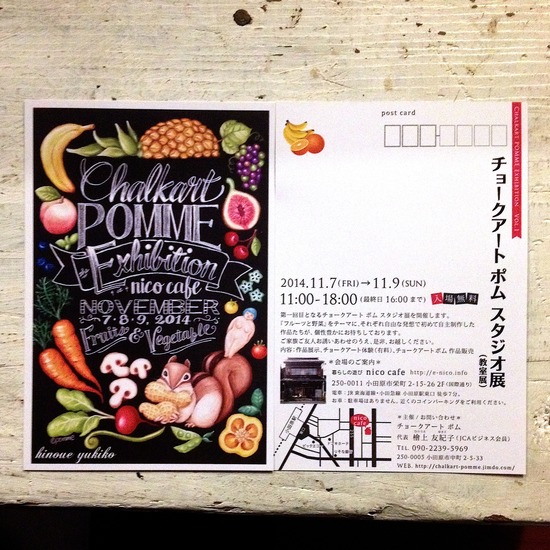 Chalkart
POMME
the Exhibition
in nico cafe
NOVEMBER
7·8·9, 2014
Fruits & Vegetable
hinoue yukiko
post card
CHALKART POMME EXHIBITION VOL.1
チョークアート ポム スタジオ展
(教室展)
2014.11.7(FRI)→11.9(SUN)
11:00-18:00(最終日 16:00まで) 入場無料
第一回目となるチョークアート ポム スタジオ展を開催します。
「フルーツと野菜」をテーマに、それぞれ自由な発想で初めて自主制作した
作品たちが、個性豊かにお待ちしております。
ご家族ご友人お誘いあわせのうえ、是非、お越しください。
内容:作品展示、チョークアート体験(有料)、チョークアートポム 作品販売
*会場のご案内*
暮らしの遊び nico cafe http://e-nico.info
250-0011 小田原市栄町 2-15-26 2F(国際通り)
電車:JR東海道線・小田急線 小田原駅東口 徒歩7分。
お車:駐車場はありません。近くのコインパーキングをご利用ください。
nico
cafe
*主催/お問い合わせ*
チョークアート ポム
代表 檜上 友紀子(JCAビジネス会員)
TEL. 090-2239-5969
250-0005 小田原市中町 2-5-33
WEB. http://chalkart-pomme.jimdo.com/